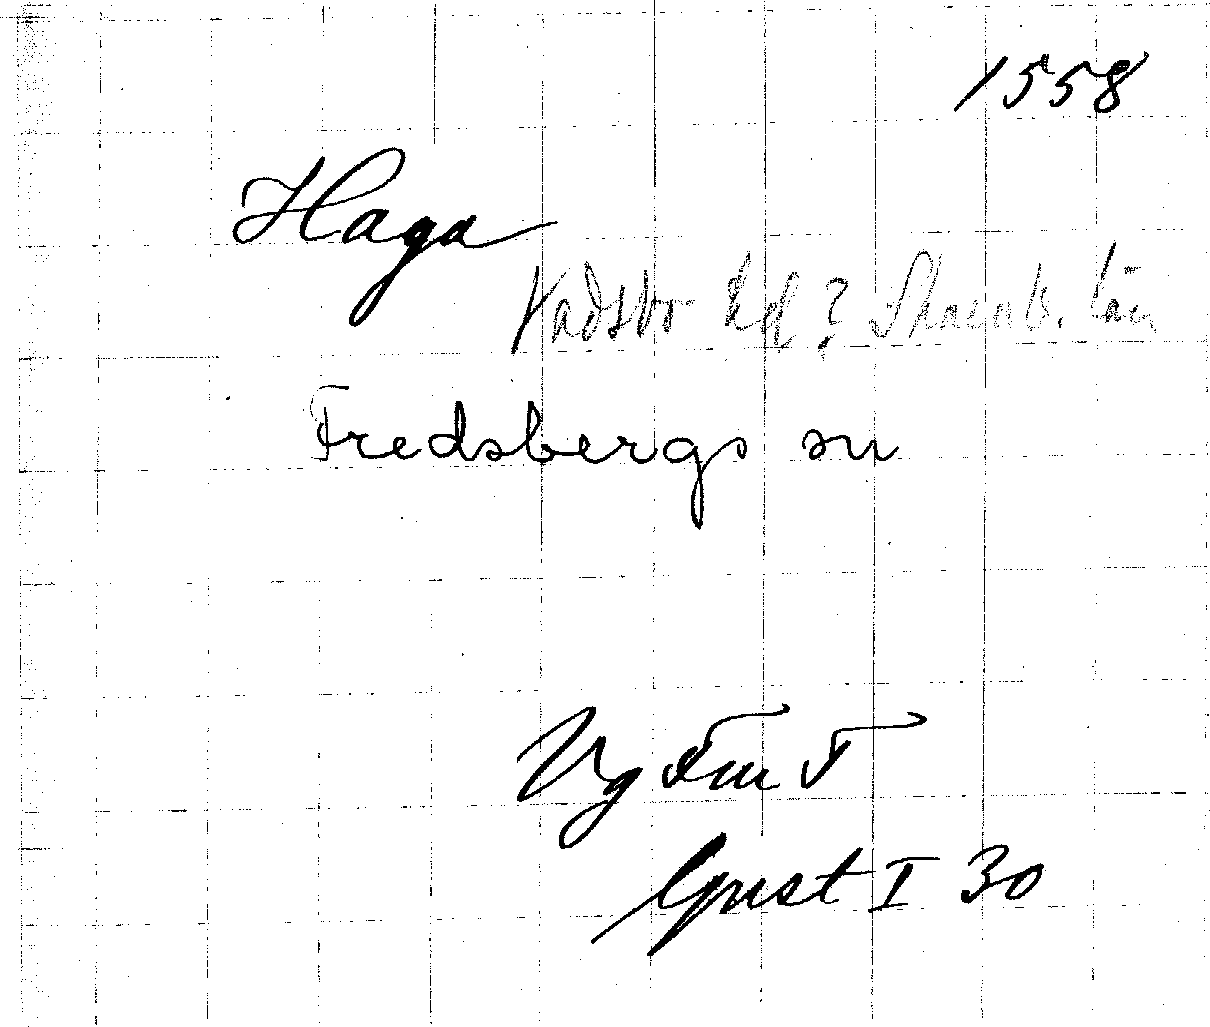 1558
Haga
Vadsbo hd? Skarab. län
Fredsbergs sn
Vg Fru F
Gust I 30